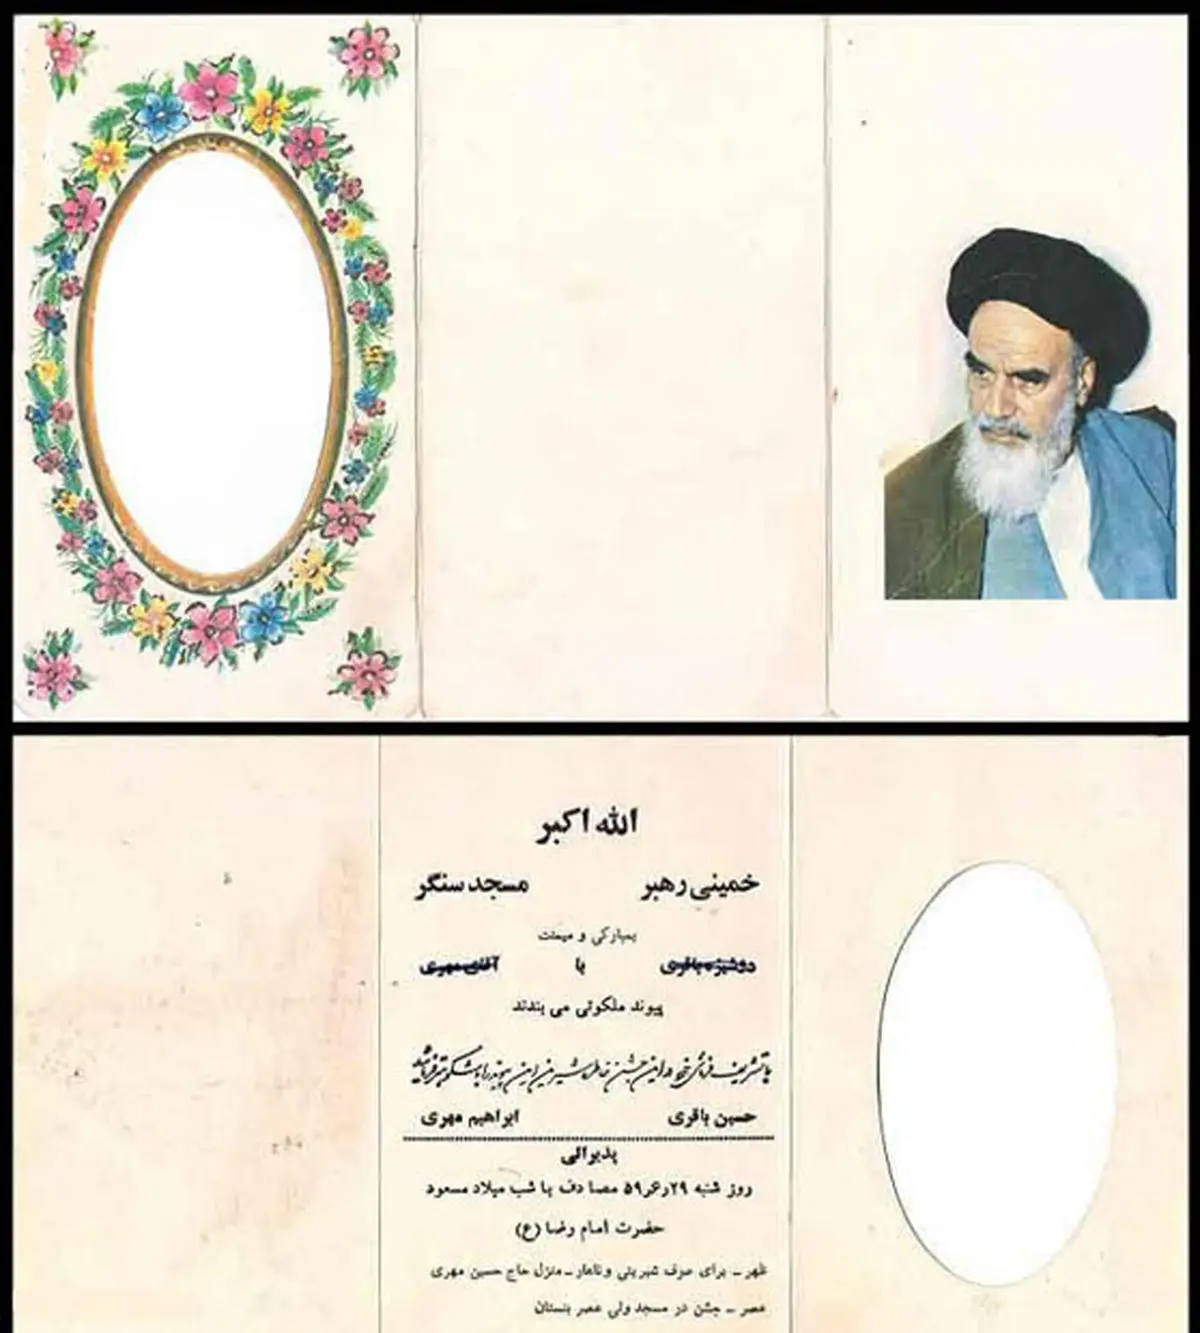 الله اکبر
خمینی رهبر مسجد سنگر
بمبارکی و میمنت
دوشیزه باقری با آقای مهری
پیوند ملکوتی می بندند
با تشریف فرمائی خود در این جشن خاطره شیرین این پیوند را باشکوهتر فرمائید
حسین باقری ابراهیم مهری
پذیرائی
روز شنبه ۵۹ر۶ر۲۹ مصادف با شب میلاد مسعود
حضرت امام رضا (ع)
ظهر ـ برای صرف شیرینی و ناهار ـ منزل حاج حسین مهری
عصر ـ جشن در مسجد ولی عصر بنستان